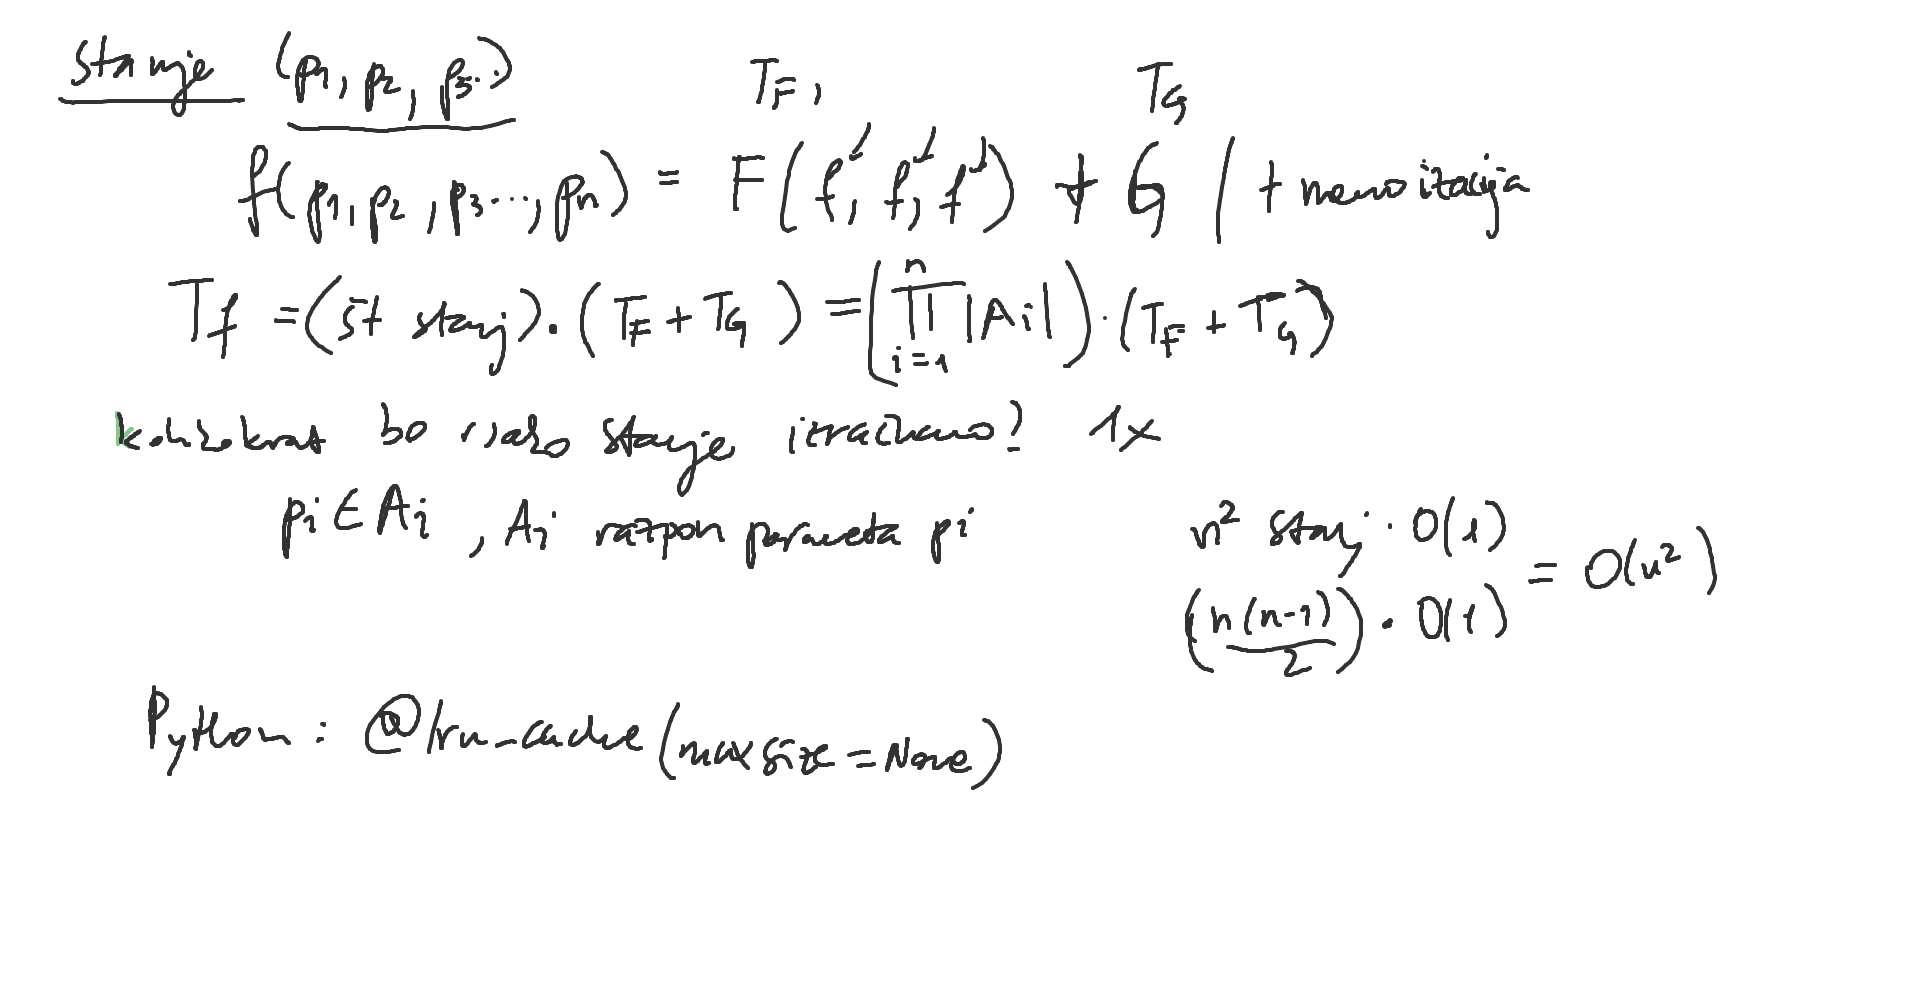 stanje (p1, p2, p3...)
T_F, T_G
f(p1, p2, p3..., pn) = F(f, f, f) + G / + memoizacija
T_f = (št stanj) · (T_F + T_G) = (∏_{i=1}^{n} |Ai|) · (T_F + T_G)
kolikokrat bo vsako stanje izračunano? 1x
pi ∈ Ai, Ai razpon parametra pi
n² stanj · O(1)
(n(n-1)/2) · O(1) = O(n²)
Python: @lru_cache(maxsize=None)